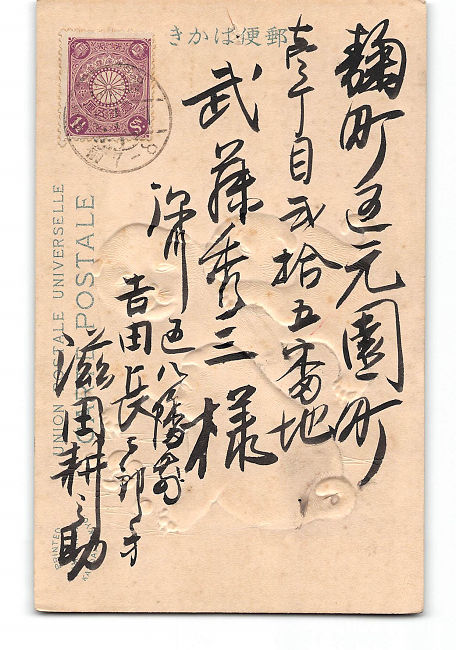 郵便はかき
麹町区元園町
壱丁目弐拾五番地
武藤秀三様
区八幡前
吉田長三郎方
滋田耕之助
UNION POSTALE UNIVERSELLE
CARTE POSTALE
PRINTED
1½ Sn